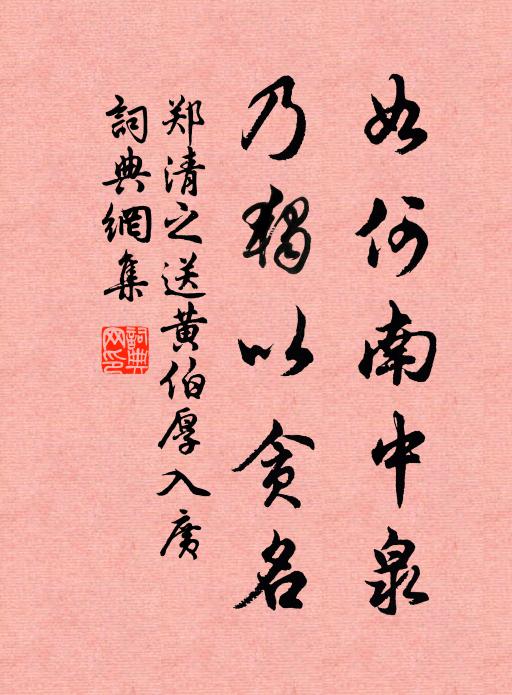 如何南中泉
乃獨以貪名
郑清之送黄伯厚入广
詞典網集
詞典网印